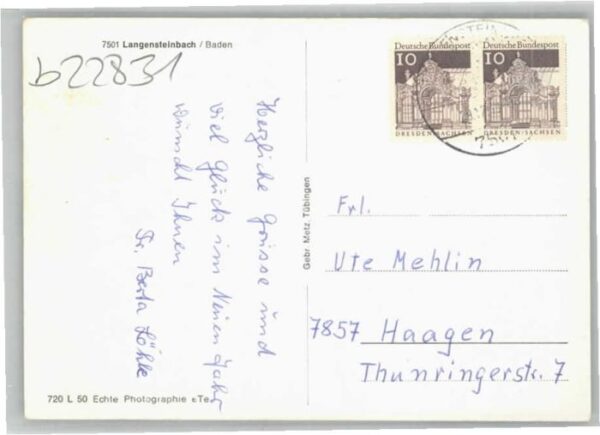 7501 Langensteinbach / Baden
b22831
Herzliche Grüsse und
viel Glück im Neuen Jahr
wünscht Ihnen
Sr. Berta Löhle
Gebr. Metz Tübingen
720 L 50 Echte Photographie
Deutsche Bundespost
10
DRESDEN/SACHSEN
Deutsche Bundespost
10
DRESDEN/SACHSEN
Frl.
Ute Mehlin
7857 Haagen
Thünringerstr. 7